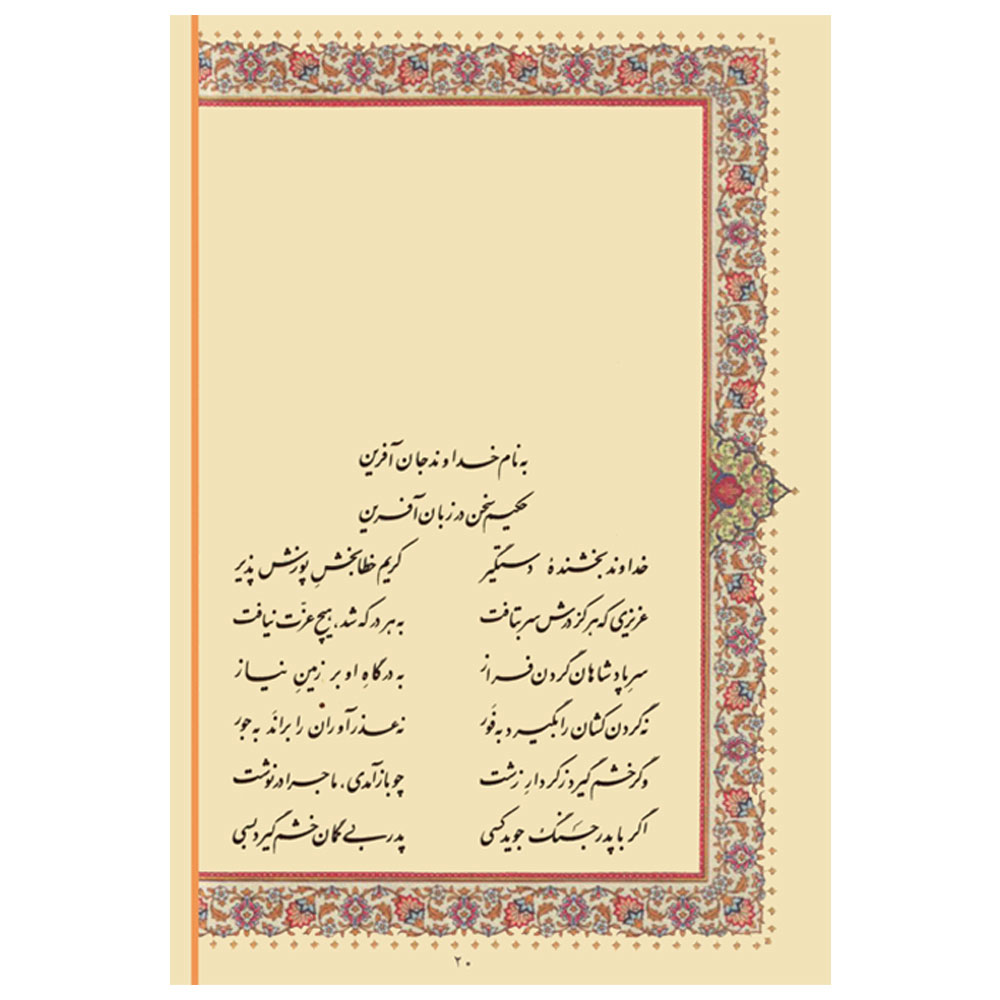 به نام خداوند جان آفرین
حکیم سخن در زبان آفرین
خداوند بخشندهٔ دستگیر کریم خطابخشِ پوزش پذیر
عزیزی که هر کز درش سر بتافت به هر در که شد، هیچ عزّت نیافت
سرِ پادشاهان گردن فراز به درگاهِ او بر زمینِ نیاز
نه گردن کشان را بگیرد به فَور نه عذرآوران را براند به جور
وگر خشم گیرد ز کردارِ زشت چو بازآمدی، ماجرا درنوشت
اگر با پدر جَنگ جوید کسی پدر بی گمان خشم گیرد بسی
۲۰